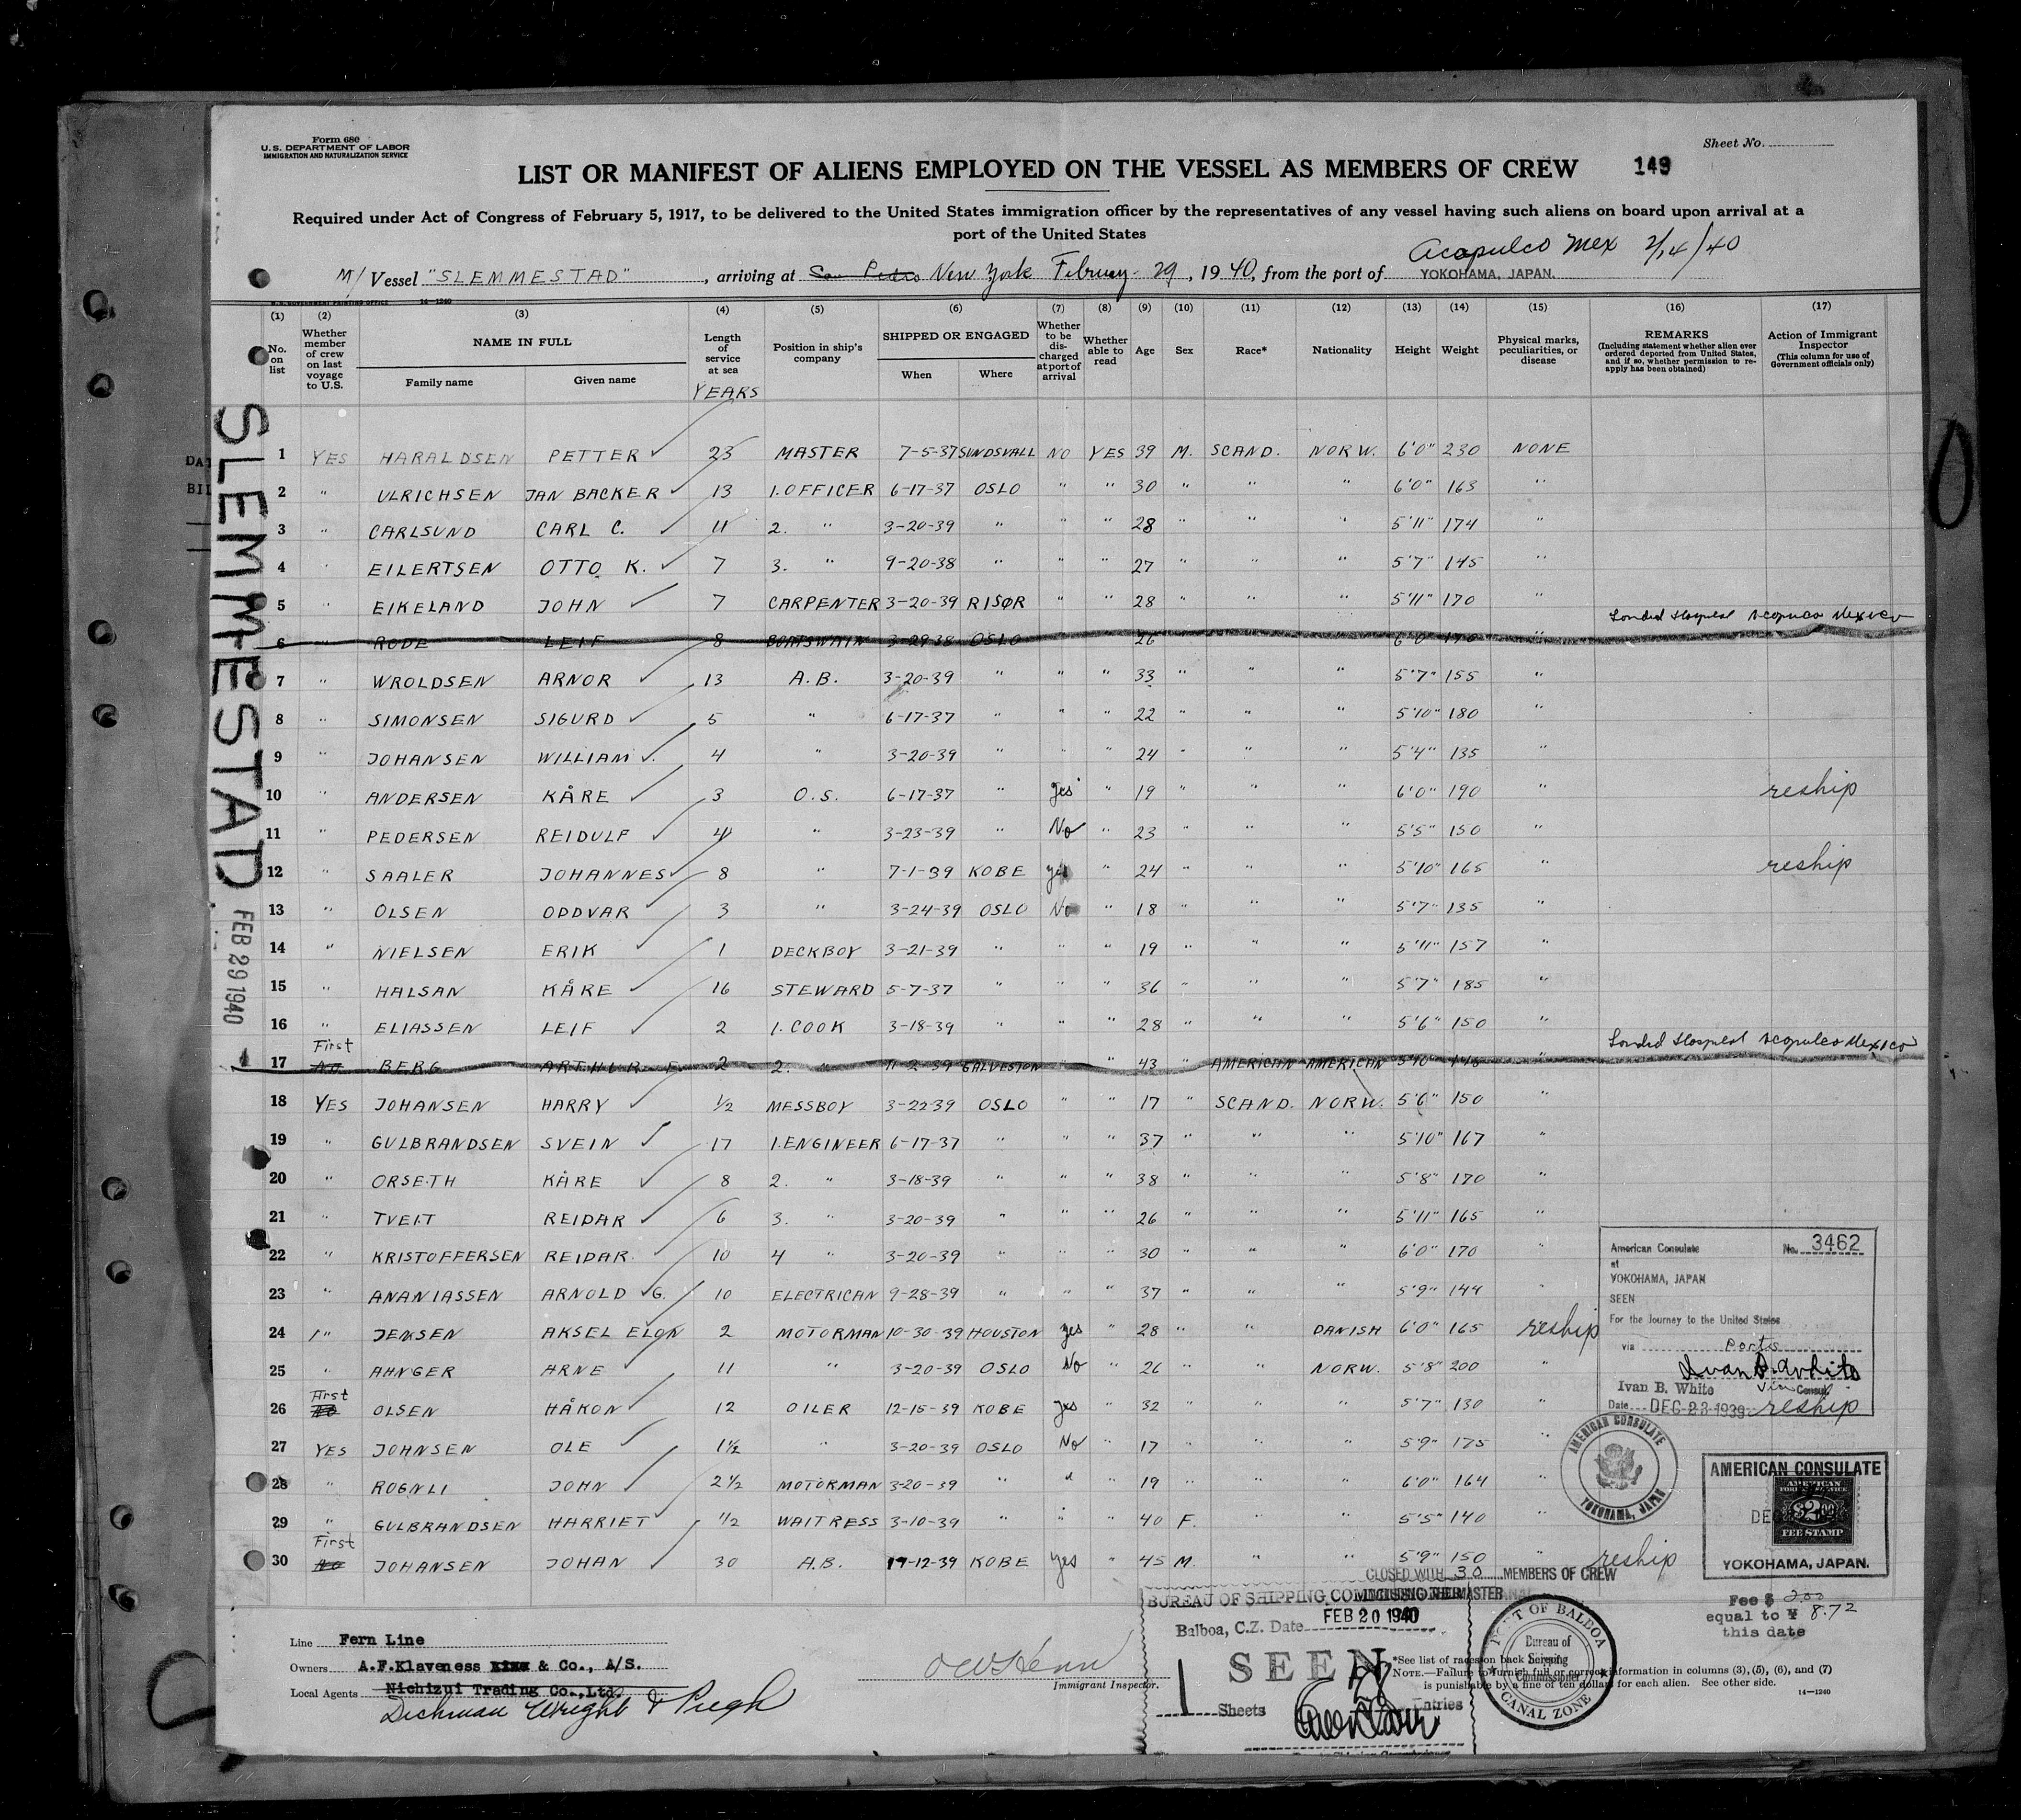 Form 680
U.S. DEPARTMENT OF LABOR
IMMIGRATION AND NATURALIZATION SERVICE
Sheet No.
LIST OR MANIFEST OF ALIENS EMPLOYED ON THE VESSEL AS MEMBERS OF CREW 149
Required under Act of Congress of February 5, 1917, to be delivered to the United States immigration officer by the representatives of any vessel having such aliens on board upon arrival at a
port of the United States
Acapulco Mex 2/14/40
M/ Vessel "SLEMMESTAD", arriving at San Pedro New York February 29, 1940, from the port of YOKOHAMA, JAPAN.
14-1240
(1) (2) (3) (4) (5) (6) (7) (8) (9) (10) (11) (12) (13) (14) (15) (16) (17)
No. on list
Whether member of crew on last voyage to U.S.
NAME IN FULL
Family name
Given name
Length of service at sea
YEARS
Position in ship's company
SHIPPED OR ENGAGED
When
Where
Whether to be discharged at port of arrival
Whether able to read
Age
Sex
Race*
Nationality
Height
Weight
Physical marks, peculiarities, or disease
REMARKS
(Including statement whether alien ever ordered deported from United States, and if so, whether permission to reapply has been obtained)
Action of Immigrant Inspector
(This column for use of Government officials only)
SLEMMESTAD
FEB 29 1940
1 YES HARALDSEN PETTER 23 MASTER 7-5-37 SUNDSVALL NO YES 39 M. SCAND. NORW. 6'0" 230 NONE
2 " ULRICHSEN JAN BACKER 13 1.OFFICER 6-17-37 OSLO " " 30 " " " 6'0" 163 "
3 " CARLSUND CARL C. 11 2. " 3-20-39 " " " 28 " " " 5'11" 174 "
4 " EILERTSEN OTTO K. 7 3. " 9-20-38 " " " 27 " " " 5'7" 145 "
5 " EIKELAND JOHN 7 CARPENTER 3-20-39 RISØR " " 28 " " " 5'11" 170 "
Landed Hospital Acapulco Mexico
6 " RODE LEIF 8 BOATSWAIN 3-29-38 OSLO " " 26 " " " 6'0" 170 "
7 " WROLDSEN ARNOR 13 A.B. 3-20-39 " " " 33 " " " 5'7" 155 "
8 " SIMONSEN SIGURD 5 " 6-17-37 " " " 22 " " " 5'10" 180 "
9 " JOHANSEN WILLIAM 4 " 3-20-39 " " " 24 " " " 5'4" 135 "
10 " ANDERSEN KÅRE 3 O.S. 6-17-37 " yes " 19 " " " 6'0" 190 " reship
11 " PEDERSEN REIDULF 4 " 3-23-39 " No " 23 " " " 5'5" 150 "
12 " SAALER JOHANNES 8 " 7-1-39 KOBE yes " 24 " " " 5'10" 165 " reship
13 " OLSEN ODDVAR 3 " 3-24-39 OSLO No " 18 " " " 5'7" 135 "
14 " NIELSEN ERIK 1 DECKBOY 3-21-39 " " " 19 " " " 5'11" 157 "
15 " HALSAN KÅRE 16 STEWARD 5-7-37 " " " 36 " " " 5'7" 185 "
16 " ELIASSEN LEIF 2 1.COOK 3-18-39 " " " 28 " " " 5'6" 150 "
Landed Hospital Acapulco Mexico
17 First BERG ARTHUR F. 2 2. " 11-2-39 GALVESTON " " 43 " AMERICAN AMERICAN 5'10" 145 "
18 YES JOHANSEN HARRY 1/2 MESSBOY 3-22-39 OSLO " " 17 " SCAND. NORW. 5'6" 150 "
19 " GULBRANDSEN SVEIN 17 1.ENGINEER 6-17-37 " " " 37 " " " 5'10" 167 "
20 " ORSETH KÅRE 8 2. " 3-18-39 " " " 38 " " " 5'8" 170 "
21 " TVEIT REIDAR 6 3. " 3-20-39 " " " 26 " " " 5'11" 165 "
22 " KRISTOFFERSEN REIDAR 10 4 " 3-20-39 " " " 30 " " " 6'0" 170 "
23 " ANANIASSEN ARNOLD G. 10 ELECTRICAN 9-28-39 " " " 37 " " " 5'9" 144 "
24 " JENSEN AKSEL ELON 2 MOTORMAN 10-30-39 HOUSTON yes " 28 " " DANISH 6'0" 165 reship
25 " AHNGER ARNE 11 " 3-20-39 OSLO No " 26 " " NORW. 5'8" 200 "
26 First OLSEN HÅKON 12 OILER 12-15-39 KOBE yes " 32 " " " 5'7" 130 " reship
27 YES JOHNSEN OLE 1 1/2 " 3-20-39 OSLO No " 17 " " " 5'9" 175 "
28 " ROGNLI JOHN 2 1/2 MOTORMAN 3-20-39 " " " 19 " " " 6'0" 164 "
29 " GULBRANDSEN HARRIET 1/2 WAITRESS 3-10-39 " " " 40 F. " " 5'5" 140 "
30 First JOHANSEN JOHAN 30 A.B. 19-12-39 KOBE yes " 45 M. " " 5'9" 150 reship
American Consulate No. 3462
at
YOKOHAMA, JAPAN
SEEN
For the Journey to the United States
via Ports
Ivan B. White
Ivan B. White Vice Consul
Date DEC 23 1939
AMERICAN CONSULATE
YOKOHAMA, JAPAN
AMERICAN CONSULATE
AMERICAN
FOREIGN SERVICE
$2.00
FEE STAMP
YOKOHAMA, JAPAN.
Fee $ 2.00
equal to ¥ 8.72
this date
CLOSED WITH 30 MEMBERS OF CREW
INCLUDING THE MASTER
BUREAU OF SHIPPING COMMISSIONER
Balboa, C.Z. Date FEB 20 1940
SEEN
1 Sheets Entries
PORT OF BALBOA
Bureau of
Shipping
Commissioner
CANAL ZONE
Line Fern Line
Owners A.F.Klaveness & Co., A/S.
Local Agents Nichizui Trading Co.,Ltd.
Dichman Wright & Pugh
Immigrant Inspector.
*See list of races on back hereof.
NOTE.—Failure to furnish full or correct information in columns (3), (5), (6), and (7)
is punishable by a fine of ten dollars for each alien. See other side.
14-1240